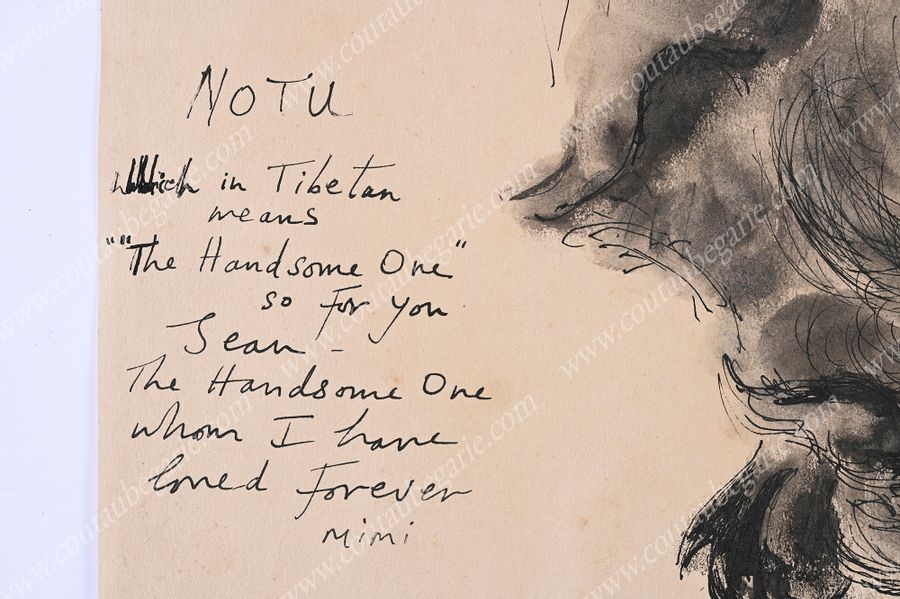 NOTU
which in Tibetan
means
""The Handsome One"
so for you
Sean -
The Handsome One
whom I have
loved Forever
Mimi
www.coutaubegarie.com